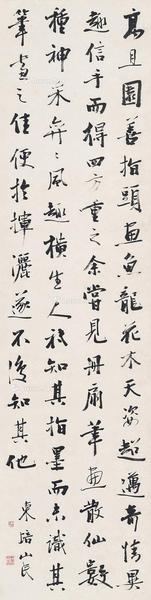 高且園善指頭畫魚龍花木天姿超邁奇情異
趣信手而得四方重之余嘗見冊扇筆畫散仙數
種神采奕〻風趣橫生人於知其指墨而未識其
筆畫之佳便於揮灑遂不復知其他
東培山民